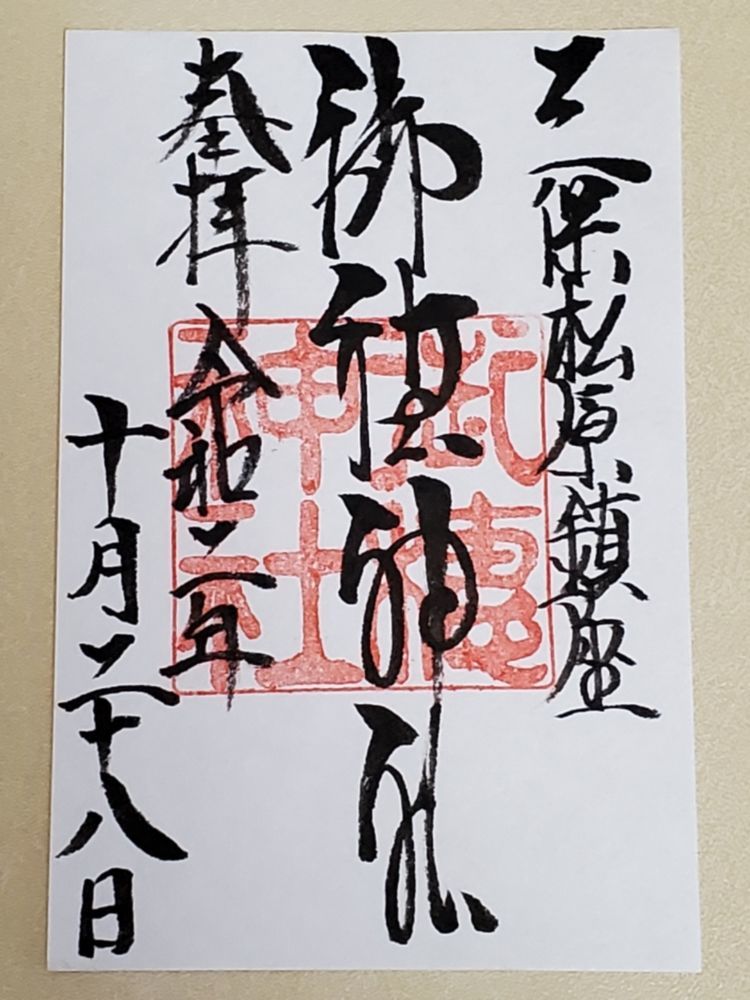 三保松原鎮座
御穂神社
奉拝 令和二年
十月二十八日
穂
神社